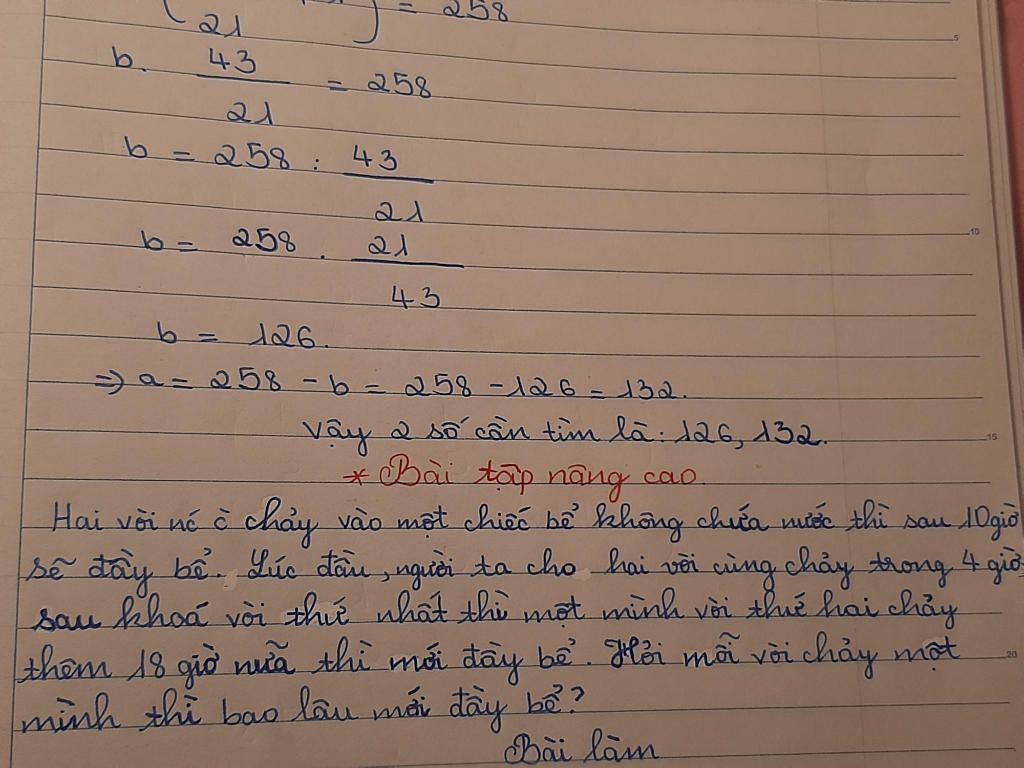 21 = 258
b. 43/21 = 258
b = 258 : 43/21
b = 258 . 21/43
b = 126.
=> a = 258 - b = 258 - 126 = 132.
Vậy 2 số cần tìm là: 126, 132.
* Bài tập nâng cao.
Hai vời nć c̀ chảy vào một chiếc bể không chứa nước thì sau 10 giờ
sẽ đầy bể. Lúc đầu, người ta cho hai vời cùng chảy trong 4 giờ,
sau khoá vời thứ nhất thì một mình vời thứ hai chảy
thêm 18 giờ nữa thì mới đầy bể. Hỏi mỗi vời chảy một
mình thì bao lâu mới đầy bể?
Bài làm